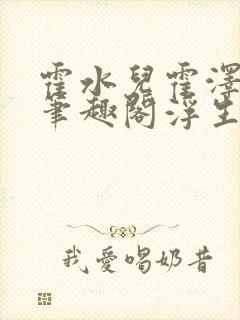 霍水兒霍澤
筆趣閣浮生
我愛喝奶昔